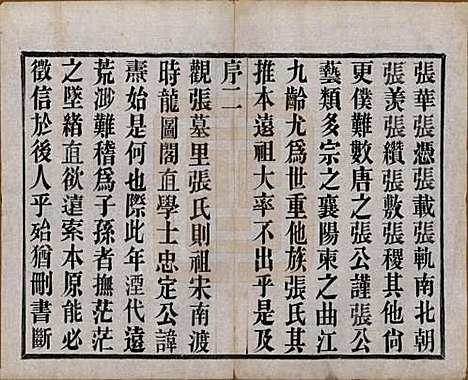 張華張憑張載張軌南北朝
張羨張纘張敷張稷其他尙
更僕難數唐之張公謹張公
藝類多宗之襄陽柬之曲江
九齡尤爲世重他族張氏其
推本遠祖大率不出乎是及
序二
觀張墓里張氏則祖宋南渡
時龍圖閣直學士忠定公諱
燾始是何也際此年湮代遠
荒渺難稽爲子孫者撫茫茫
之墜緒直欲遠案本原能必
徵信於後人乎殆猶刪書斷